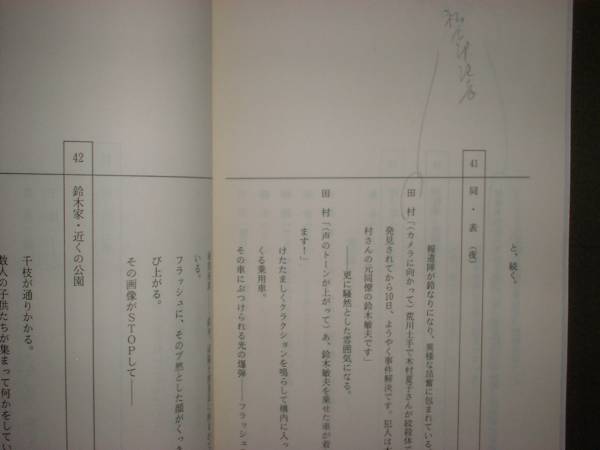 と、続く。
41
同・表(夜)
報道陣が鈴なりになり、異様な昂奮に包まれている。
田 村「(カメラに向かって)荒川土手で木村夏子さんが絞殺体で
発見されてから10日、ようやく事件解決です。犯人は木
村さんの元同僚の鈴木敏夫です」
――更に騒然とした雰囲気になる。
田 村「(声のトーンが上がって)あ、鈴木敏夫を乗せた車が着
ます!」
けたたましくクラクションを鳴らして構内に入っ
くる乗用車。
その車にぶつけられる光の爆弾――フラッシュ
いる。
フラッシュに、そのブ然とした顔がくっき
び上がる。
その画像がSTOPして――
42
鈴木家・近くの公園
千枝が通りかかる。
数人の子供たちが集まって何かをしてい